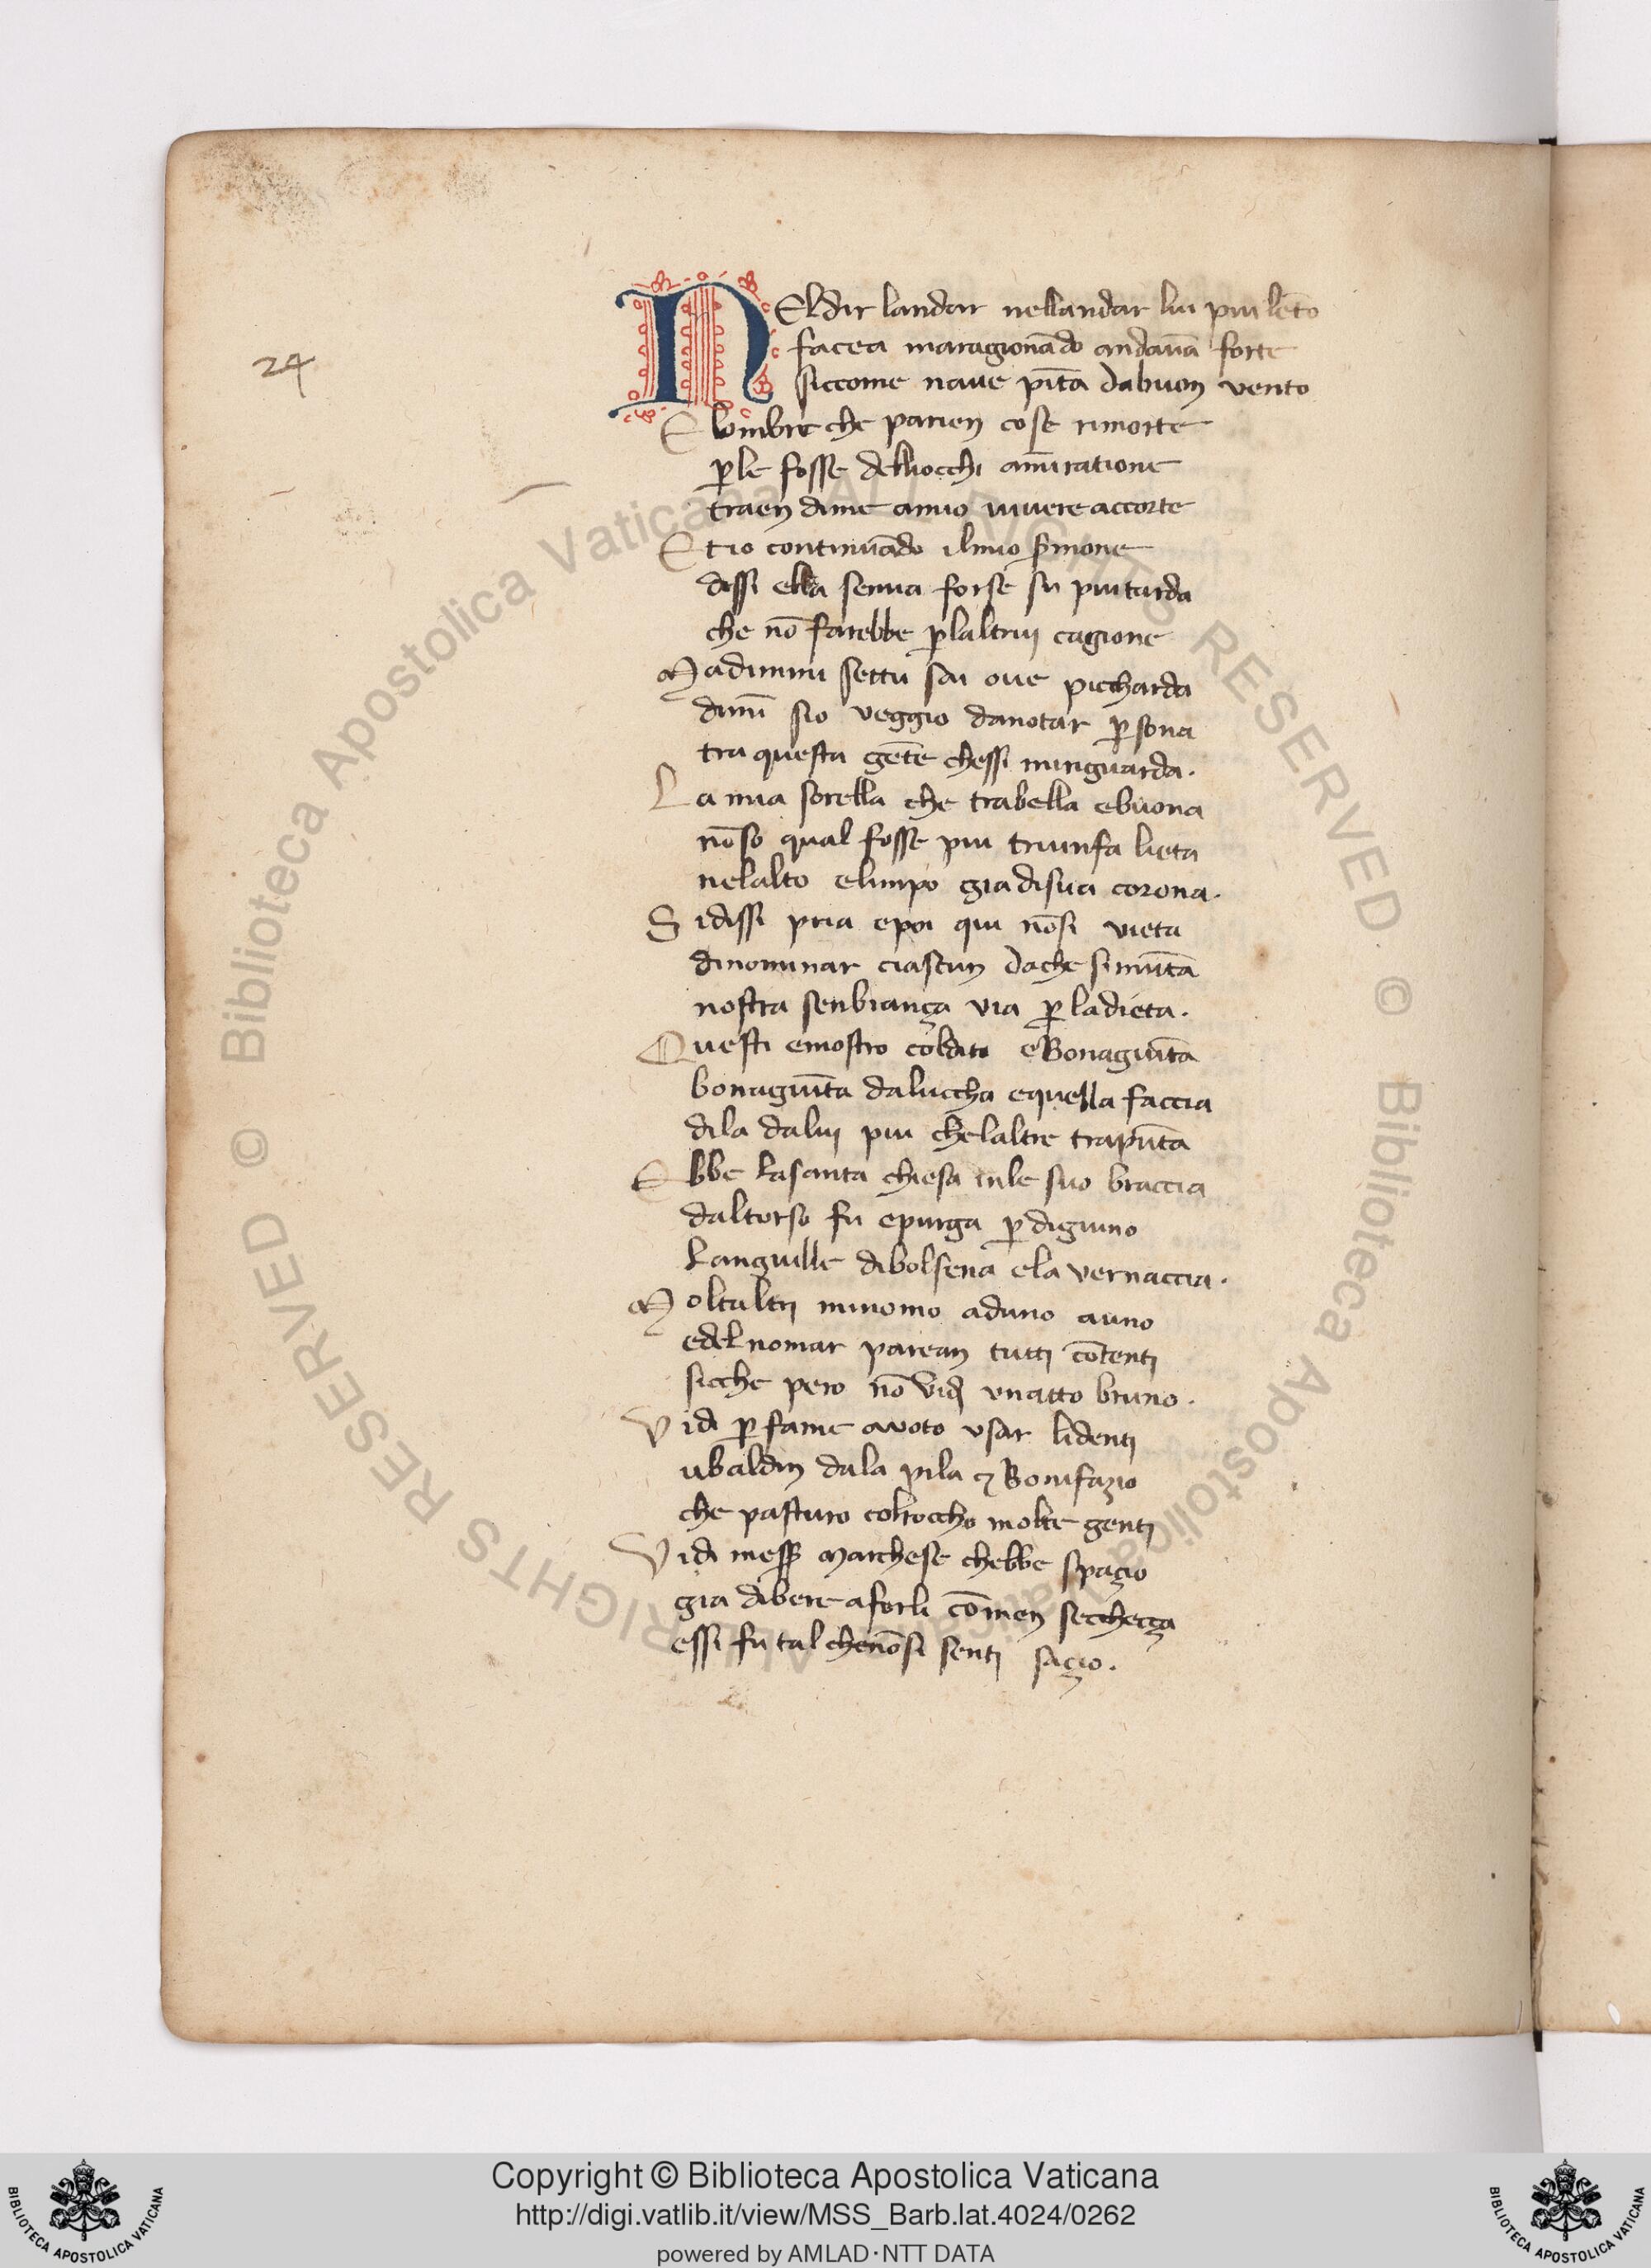 24
NEldir landar nellandar lui piu lēto
facea maragionādo andauā forte
siccome naue pīta dabuon vento
E lombre che parien cose rimorte
ꝑle fosse delliocchi amiratione
traen dime amio viuere accorte
Et io continuādo ilmio s̄mone
dissi ella senua forse su piutarda
che nō farebbe ꝑlaltrui cagione
Madimmi settu sai oue piccharda
dimī sio veggio danotar ꝑsona
tra questa gēte chessi miriguarda.
La mia sorella che trabella ebuona
nōso qual fosse piu triunfa lieta
nelalto elimpo gia disua corona.
Sidissi pria epoi qui nōsi vieta
dinominar ciascun dache simūta
nostra senbiança via ꝑ ladieta.
Questi emostro coldito eBonagiūta
bonagiūta daluccha equella faccia
dila dalui piu chelaltre trapūta
Ebbe lasanta chiesa inle suo braccia
daltorso fu epurga ꝑ digiuno
languille dibolsena ela vernaccia.
Moltaltri minomo aduno auno
edel nomar parean tutti cōtenti
sicche pero nō vidi vnatto bruno.
Vidi ꝑ fame avoto vsar lidenti
ubaldin dala pila ⁊ Bonifazio
che pasturo colroccho molte genti
Vidi mess̄ Marchese chebbe spaçio
gia dibere aforli cōmen seccheçça
essi fu tal chenōsi senti saçio.
© Biblioteca Apostolica Vaticana ALL RIGHTS RESERVED © Biblioteca Apostolica Vaticana ALL RIGHTS RESERVED
Copyright © Biblioteca Apostolica Vaticana
http://digi.vatlib.it/view/MSS_Barb.lat.4024/0262
powered by AMLAD·NTT DATA
BIBLIOTECA APOSTOLICA VATICANA
BIBLIOTECA APOSTOLICA VATICANA